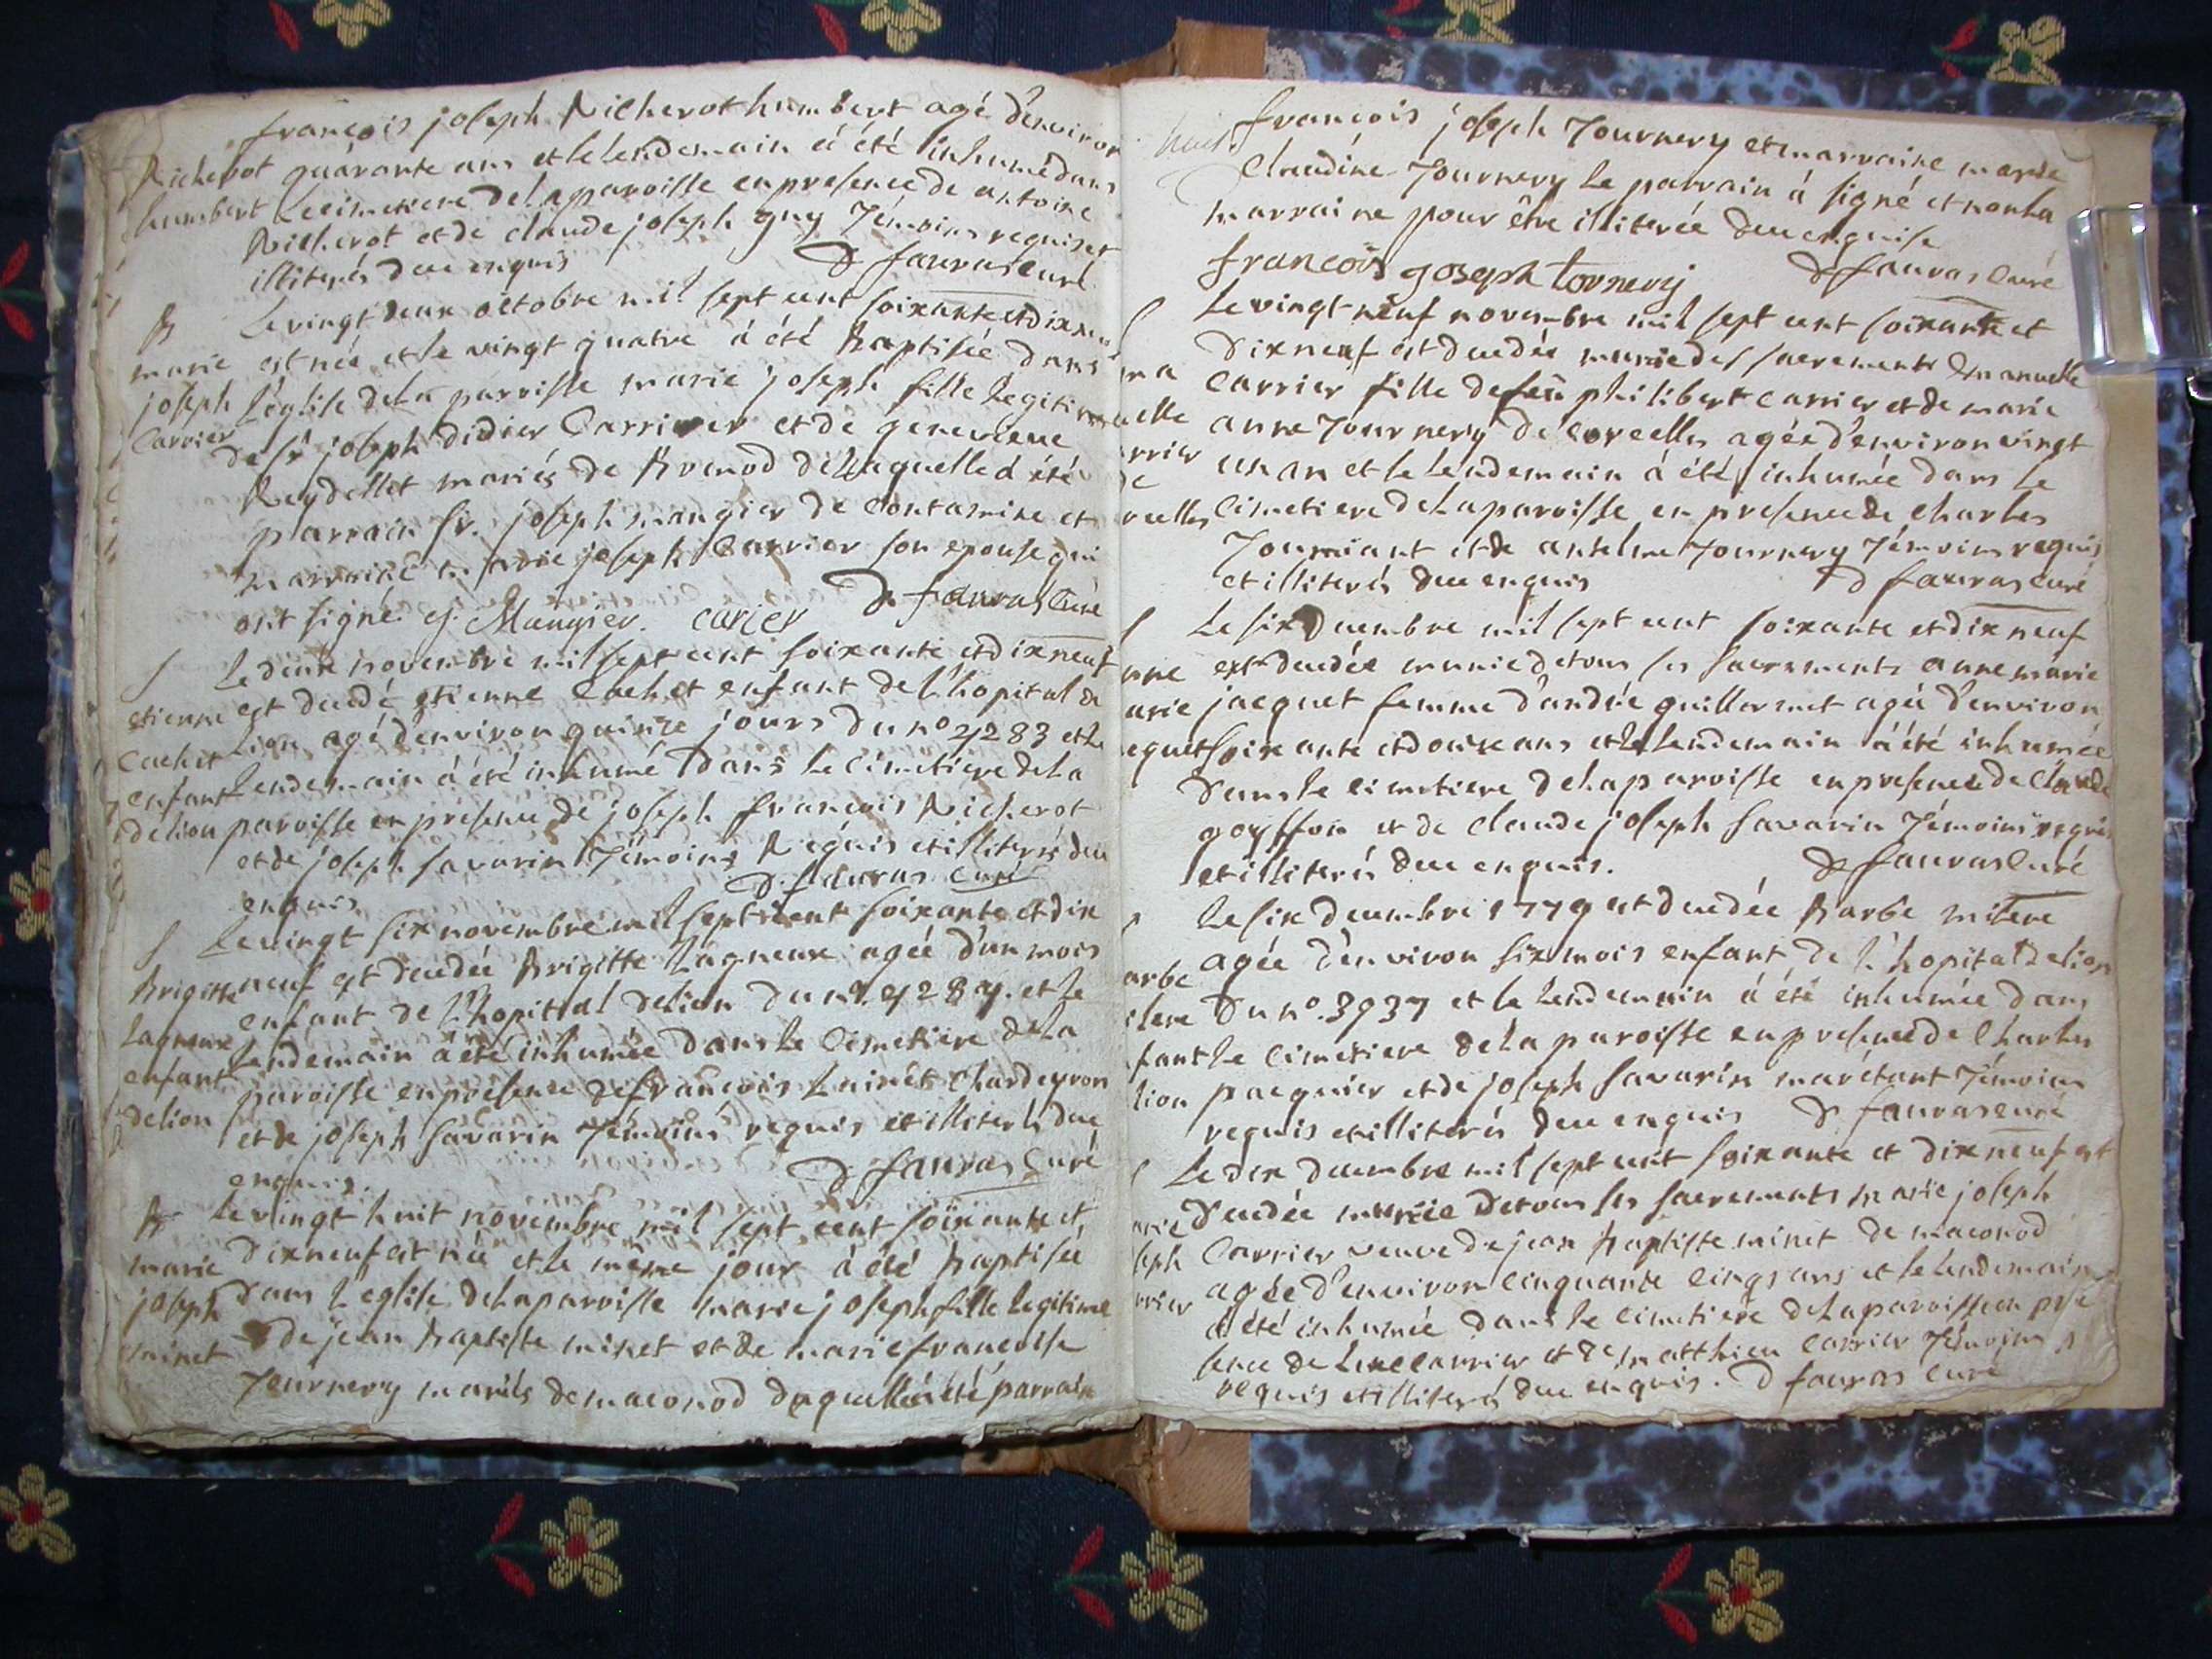 françois joseph Richerot humbert agé d'environ
Richerot quarante ans et le lendemain á été inhumé dans
humbert le cimetiere de la paroisse en presence de antoine
Richerot et de claude joseph guy témoins requis et
illiterés de ce enquis D fauvas Curé
B Le vingt deux octobre mil sept cent soixante et dix neuf
marie est née et le vingt quatre á été Baptisée dans
joseph l'église de la paroisse marie joseph fille legitime
Carrier de sr joseph didier Carrier et de genevieve
Reydellet mariés de Brenod de laquelle á été
parrain sr. joseph mangier de Contamine et
marraine marie joseph Carrier son epouse qui
ont signé. cj. Mangier. carier D. fauvas Curé
S Le deux novembre mil sept cent soixante et dix neuf
etienne est decedé etienne Cachet enfant de l'hopital de
Cachet Lion agé d'environ quinze jours du no 4283 et le
enfant lendemain á été inhumé dans le cimetiere de la
de lion paroisse en présence de joseph françois Richerot
et de joseph savarin Témoins Requis et illiterés de ce
enquis D. fauvas curé
S Le vingt six novembre mil sept cent soixante et dix
Brigitte neuf est decedée Brigitte Lagneux agée d'un mois
Lagneux enfant de l'hopital de lion du no. 4284. et le
enfant lendemain á été inhumée dans le Cimetiere de la
de lion paroisse en présence de françois humbert Chardeyron
et de joseph savarin Témoins requis et illiterés de ce
enquis. D fauvas Curé
B Le vingt huit novembre mil sept cent soixante et
marie dix neuf est née et le même jour á été Baptisée
joseph dans l'église de la paroisse marie joseph fille legitime
minet de jean Baptiste minet et de marie françoise
Journery mariés de maconod de laquelle á été parrain
françois joseph Journery et marraine marie
Claudine Journery le parrain á signé et non la
marraine pour être illiterée de ce enquise
francois goseph tornerij D fauvas Curé
Le vingt neuf novembre mil sept cent soixante et
dix neuf est decedée munie des sacrements Emanuelle
Carrier fille de feu philibert Carrier et de marie
anne Journery de Corcelles agée d'environ vingt
un an et le lendemain á été inhumée dans le
cimetiere de la paroisse en presence de Charles
et de anselme Journery Témoins requis
et illiterés de ce enquis D fauvas curé
Le six Decembre mil sept cent soixante et dix neuf
est decedée munie de tous les sacrements anne marie
jacquet femme d'andré guillermet agée d'environ
soixante et douze ans et le lendemain á été inhumée
dans le cimetiere de la paroisse en presence de Claude
goyffon et de Claude joseph Savarin Témoins requis
et illiterés de ce enquis. D fauvas Curé
Le six decembre 1779 est decedée Barbe milere
agée d'environ six mois enfant de l'hopital de lion
du no. 3937 et le lendemain á été inhumée dans
le cimetiere de la paroisse en presence de Charles
pacquier et de joseph Savarin Témoins
requis et illiterés de ce enquis D fauvas curé
Le dix decembre mil sept cent soixante et dix neuf est
decedée munie de tous les sacrements marie joseph
Carrier veuve de jean Baptiste minet de maconod
agée d'environ cinquante cinq ans et le lendemain
á été inhumée dans le cimetiere de la paroisse en pre
sence de Carrier et de matthieu Carrier Témoins
requis et illiterés de ce enquis. D fauvas curé